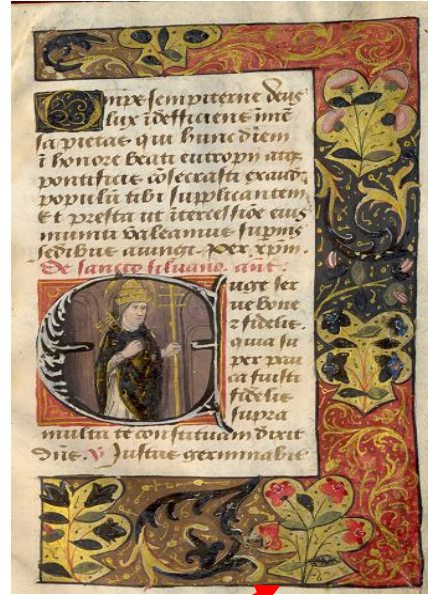 Ompe sempiterne deus
lux īdefficiens imē
sa pietas qui hunc diem
ī honore beati eutropij atq;
pontificis cōsecrasti exaudi
populū tibi supplicantem
Et presta ut ītercessiōe eius
muniti valeamus supnis
sedibus aiungi. per. xpm.
De sancto siluano. ant.
Euge ser
ue bone
z fidelis.
quia su
per pau
ca fuisti
fidelis
supra
multa te constituam dixit
dn̄s. V Iustus germinabit